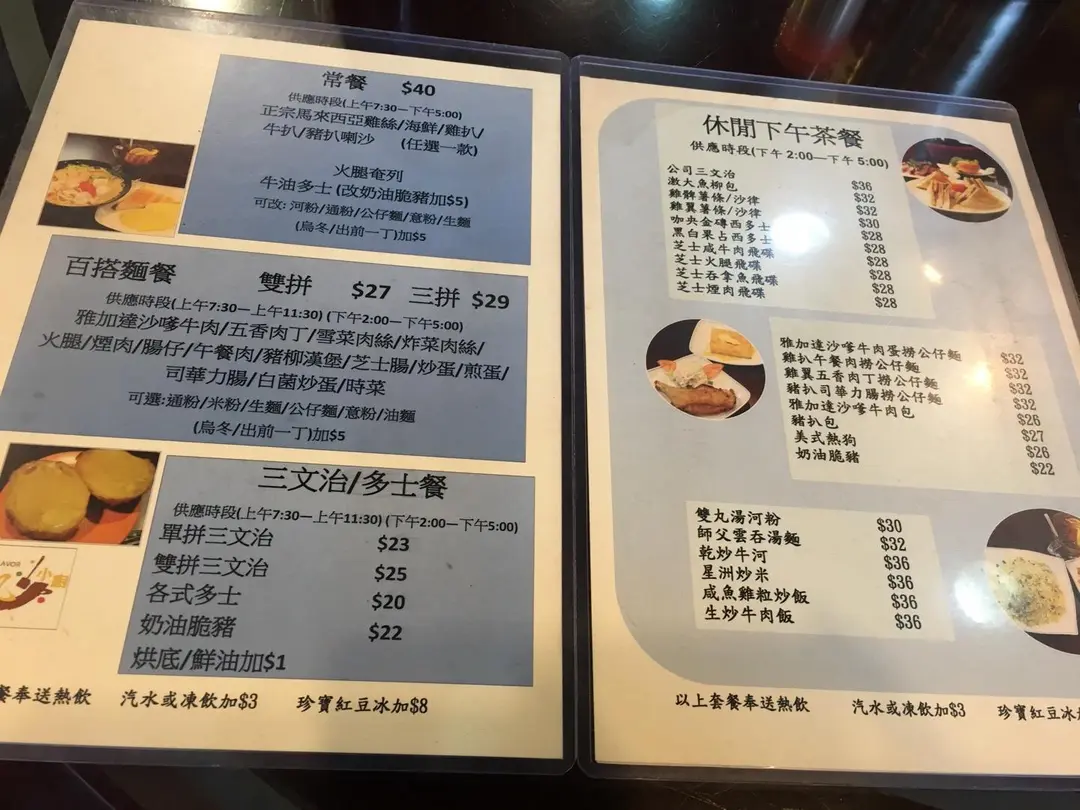 常餐 $40
供應時段(上午7:30—下午5:00)
正宗馬來西亞雞絲/海鮮/雞扒/
牛扒/豬扒喇沙 (任選一款)
火腿奄列
牛油多士 (改奶油脆豬加$5)
可改: 河粉/通粉/公仔麵/意粉/生麵
(烏冬/出前一丁)加$5
百搭麵餐 雙拼 $27 三拼 $29
供應時段(上午7:30—上午11:30) (下午2:00—下午5:00)
雅加達沙嗲牛肉/五香肉丁/雪菜肉絲/炸菜肉絲/
火腿/煙肉/腸仔/午餐肉/豬柳漢堡/芝士腸/炒蛋/煎蛋/
司華力腸/白菌炒蛋/時菜
可選:通粉/米粉/生麵/公仔麵/意粉/油麵
(烏冬/出前一丁)加$5
三文治/多士餐
供應時段(上午7:30—上午11:30) (下午2:00—下午5:00)
單拼三文治 $23
雙拼三文治 $25
各式多士 $20
奶油脆豬 $22
烘底/鮮油加$1
餐奉送熱飲 汽水或凍飲加$3 珍寶紅豆冰加$8
AVOR
小廚
休閒下午茶餐
供應時段(下午 2:00—下午 5:00)
公司三文治 $36
激大魚柳包 $32
雞髀薯條/沙律 $32
雞翼薯條/沙律 $30
咖央金磚西多士 $28
黑白果占西多士 $28
芝士咸牛肉飛碟 $28
芝士火腿飛碟 $28
芝士吞拿魚飛碟 $28
芝士煙肉飛碟 $28
雅加達沙嗲牛肉蛋撈公仔麵 $32
雞扒午餐肉撈公仔麵 $32
雞翼五香肉丁撈公仔麵 $32
豬扒司華力腸撈公仔麵 $32
雅加達沙嗲牛肉包 $26
豬扒包 $27
美式熱狗 $26
奶油脆豬 $22
雙丸湯河粉 $30
師父雲吞湯麵 $32
乾炒牛河 $36
星洲炒米 $36
咸魚雞粒炒飯 $36
生炒牛肉飯 $36
以上套餐奉送熱飲 汽水或凍飲加$3 珍寶紅豆冰